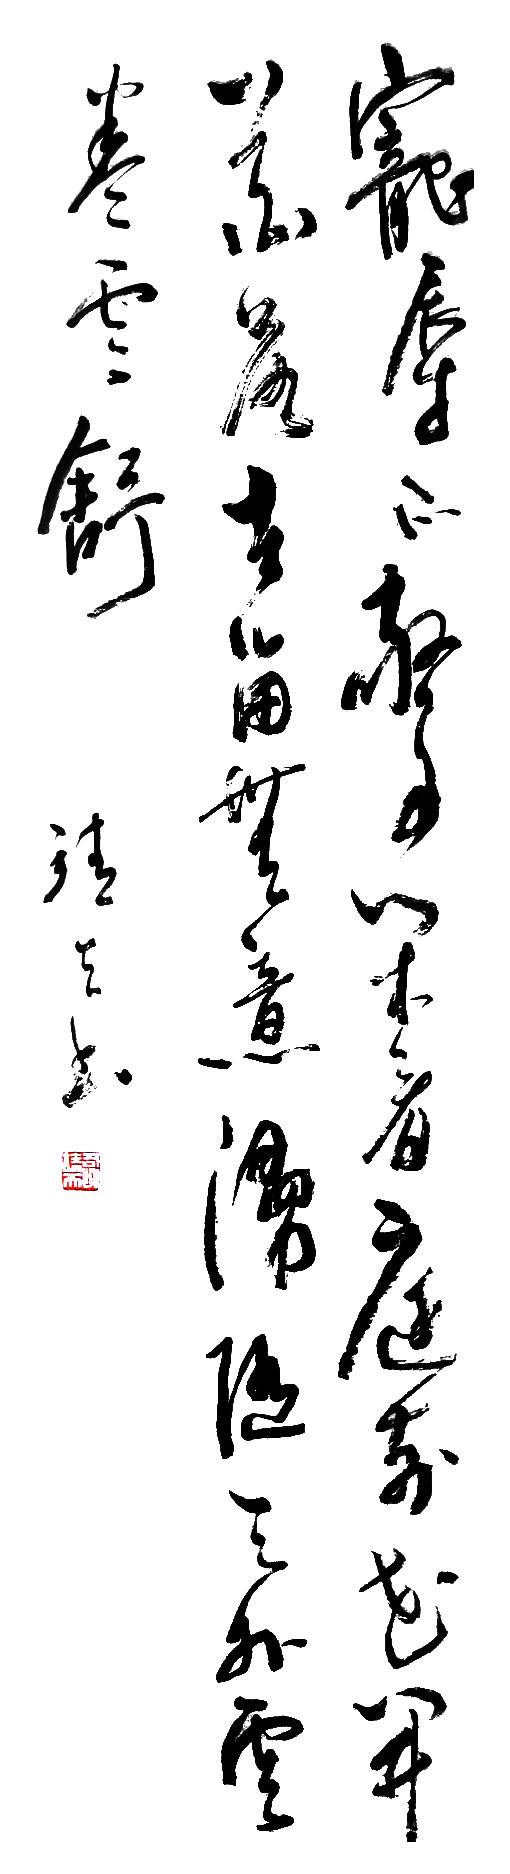 寵辱不驚閑看庭前花開
花落去留無意漫隨天外雲
卷雲舒
書